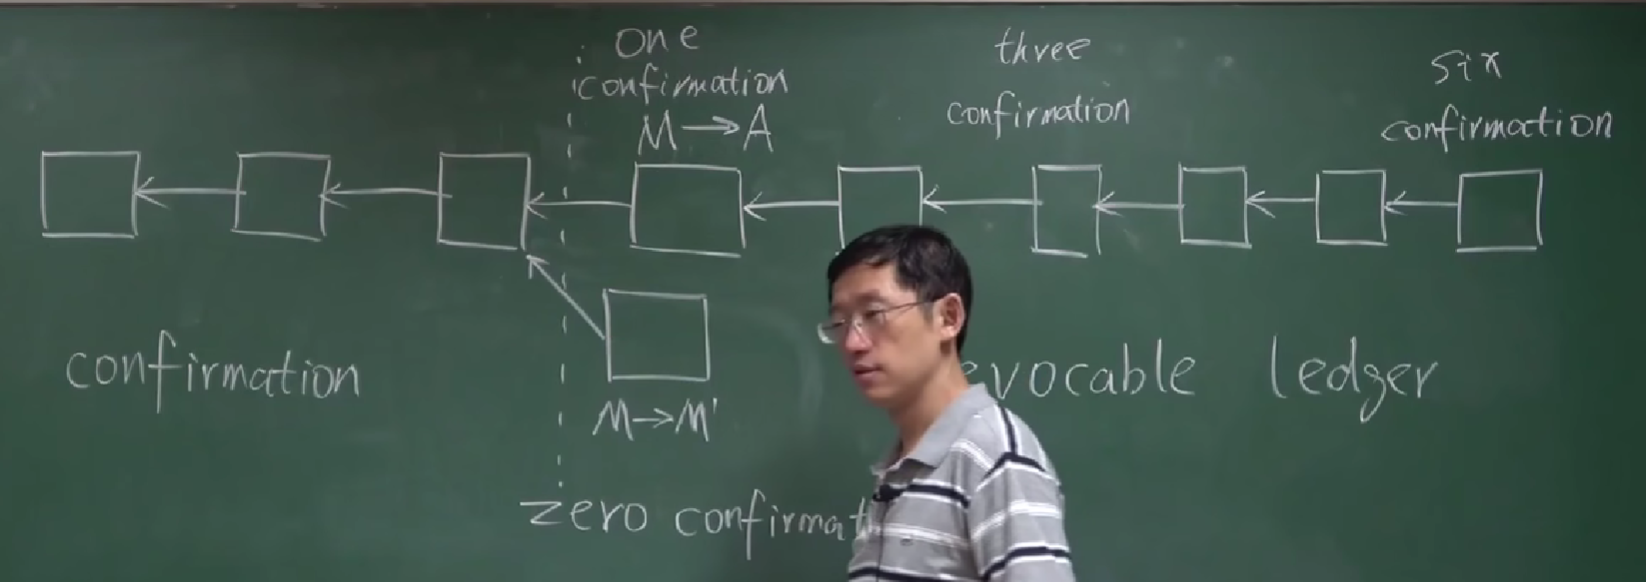 one
confirmation
M→A
three
confirmation
six
confirmation
confirmation
M→M'
evocable ledger
zero confirmat